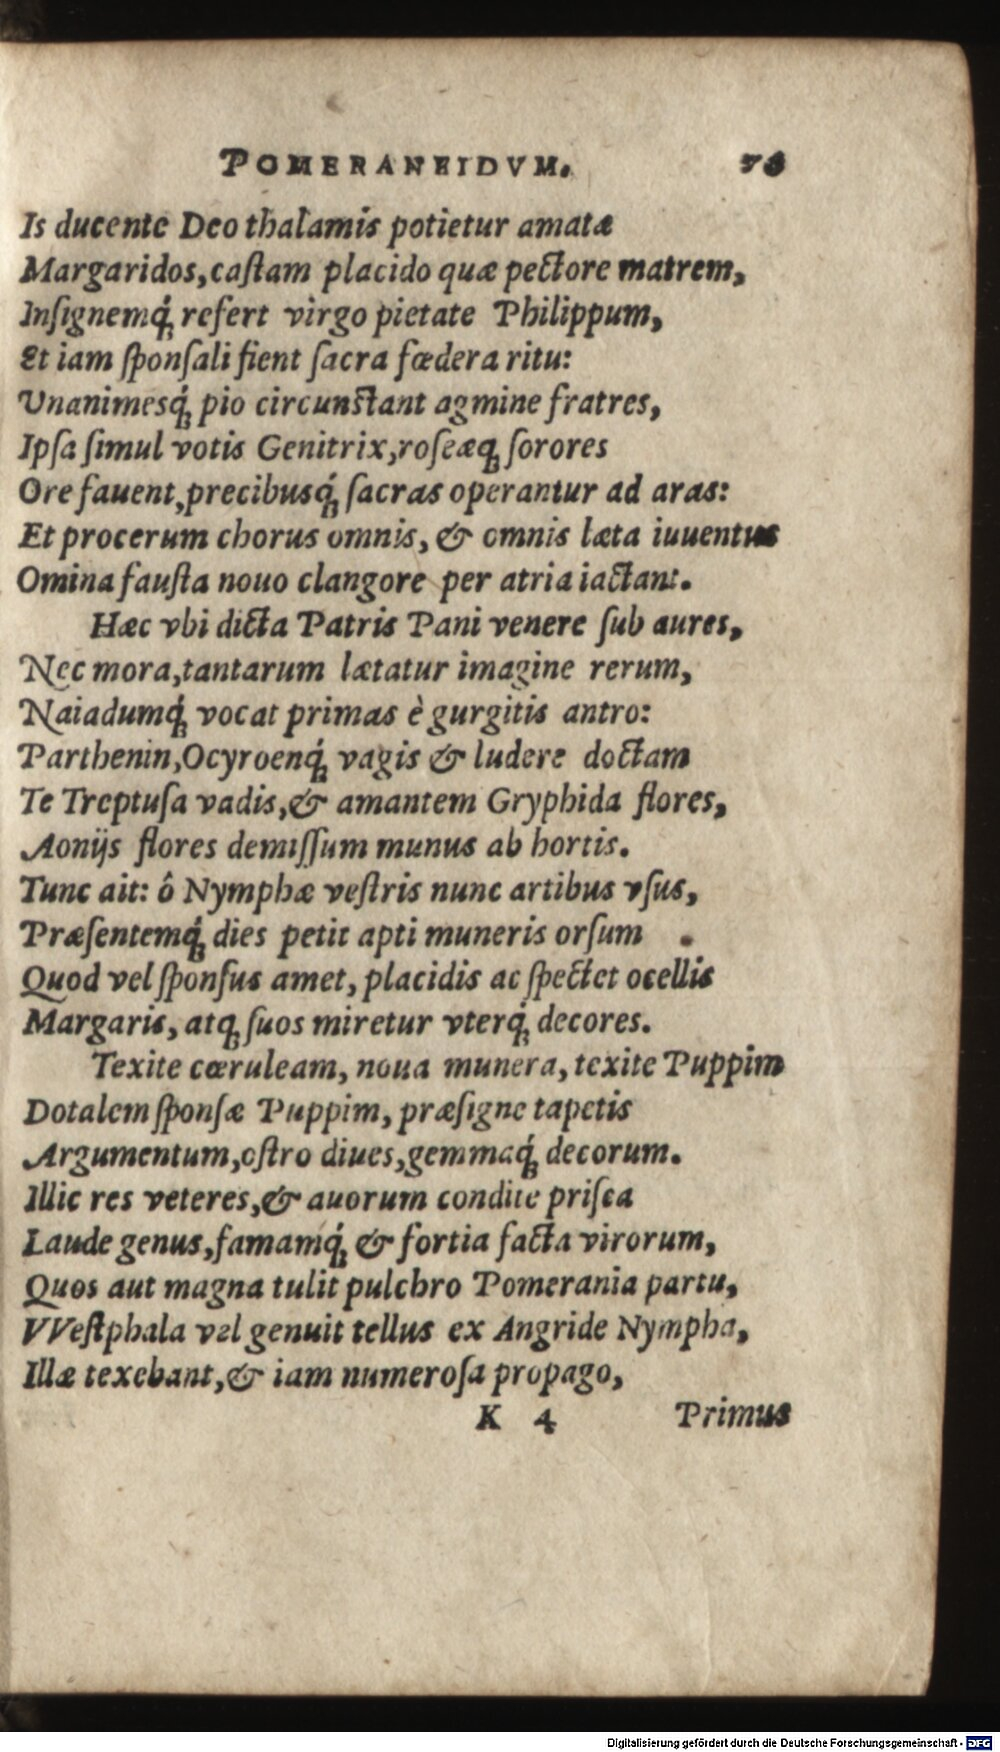 POMERANEIDVM. 76
Is ducente Deo thalamis potietur amatæ
Margaridos, caſtam placido quæ pectore matrem,
Inſignemq́; refert virgo pietate Philippum,
Et iam ſponſali fient ſacra fœdera ritu:
Unanimesq́; pio circunſtant agmine fratres,
Ipſa ſimul votis Genitrix, roſeæq; ſorores
Ore fauent, precibusq́; ſacras operantur ad aras:
Et procerum chorus omnis, & omnis læta iuuentus
Omina fauſta nouo clangore per atria iactant.
Hæc vbi dicta Patris Pani venere ſub aures,
Nec mora, tantarum lætatur imagine rerum,
Naiadumq́; vocat primas è gurgitis antro:
Parthenin, Ocyroenq́; vagis & ludere doctam
Te Treptuſa vadis, & amantem Gryphida flores,
Aonijs flores demiſſum munus ab hortis.
Tunc ait: ô Nymphæ veſtris nunc artibus vſus,
Præſentemq́; dies petit apti muneris orſum .
Quod vel ſponſus amet, placidis ac ſpectet ocellis
Margaris, atq; ſuos miretur vterq́; decores.
Texite cœruleam, noua munera, texite Puppim
Dotalem ſponſæ Puppim, præſigne tapetis
Argumentum, oſtro diues, gemmaq́; decorum.
Illic res veteres, & auorum condite priſca
Laude genus, famamq́; & fortia facta virorum,
Quos aut magna tulit pulchro Pomerania partu,
VVeſtphala vel genuit tellus ex Angride Nympha,
Illæ texebant, & iam numeroſa propago,
K 4 Primus
Digitalisierung gefördert durch die Deutsche Forschungsgemeinschaft - DFG